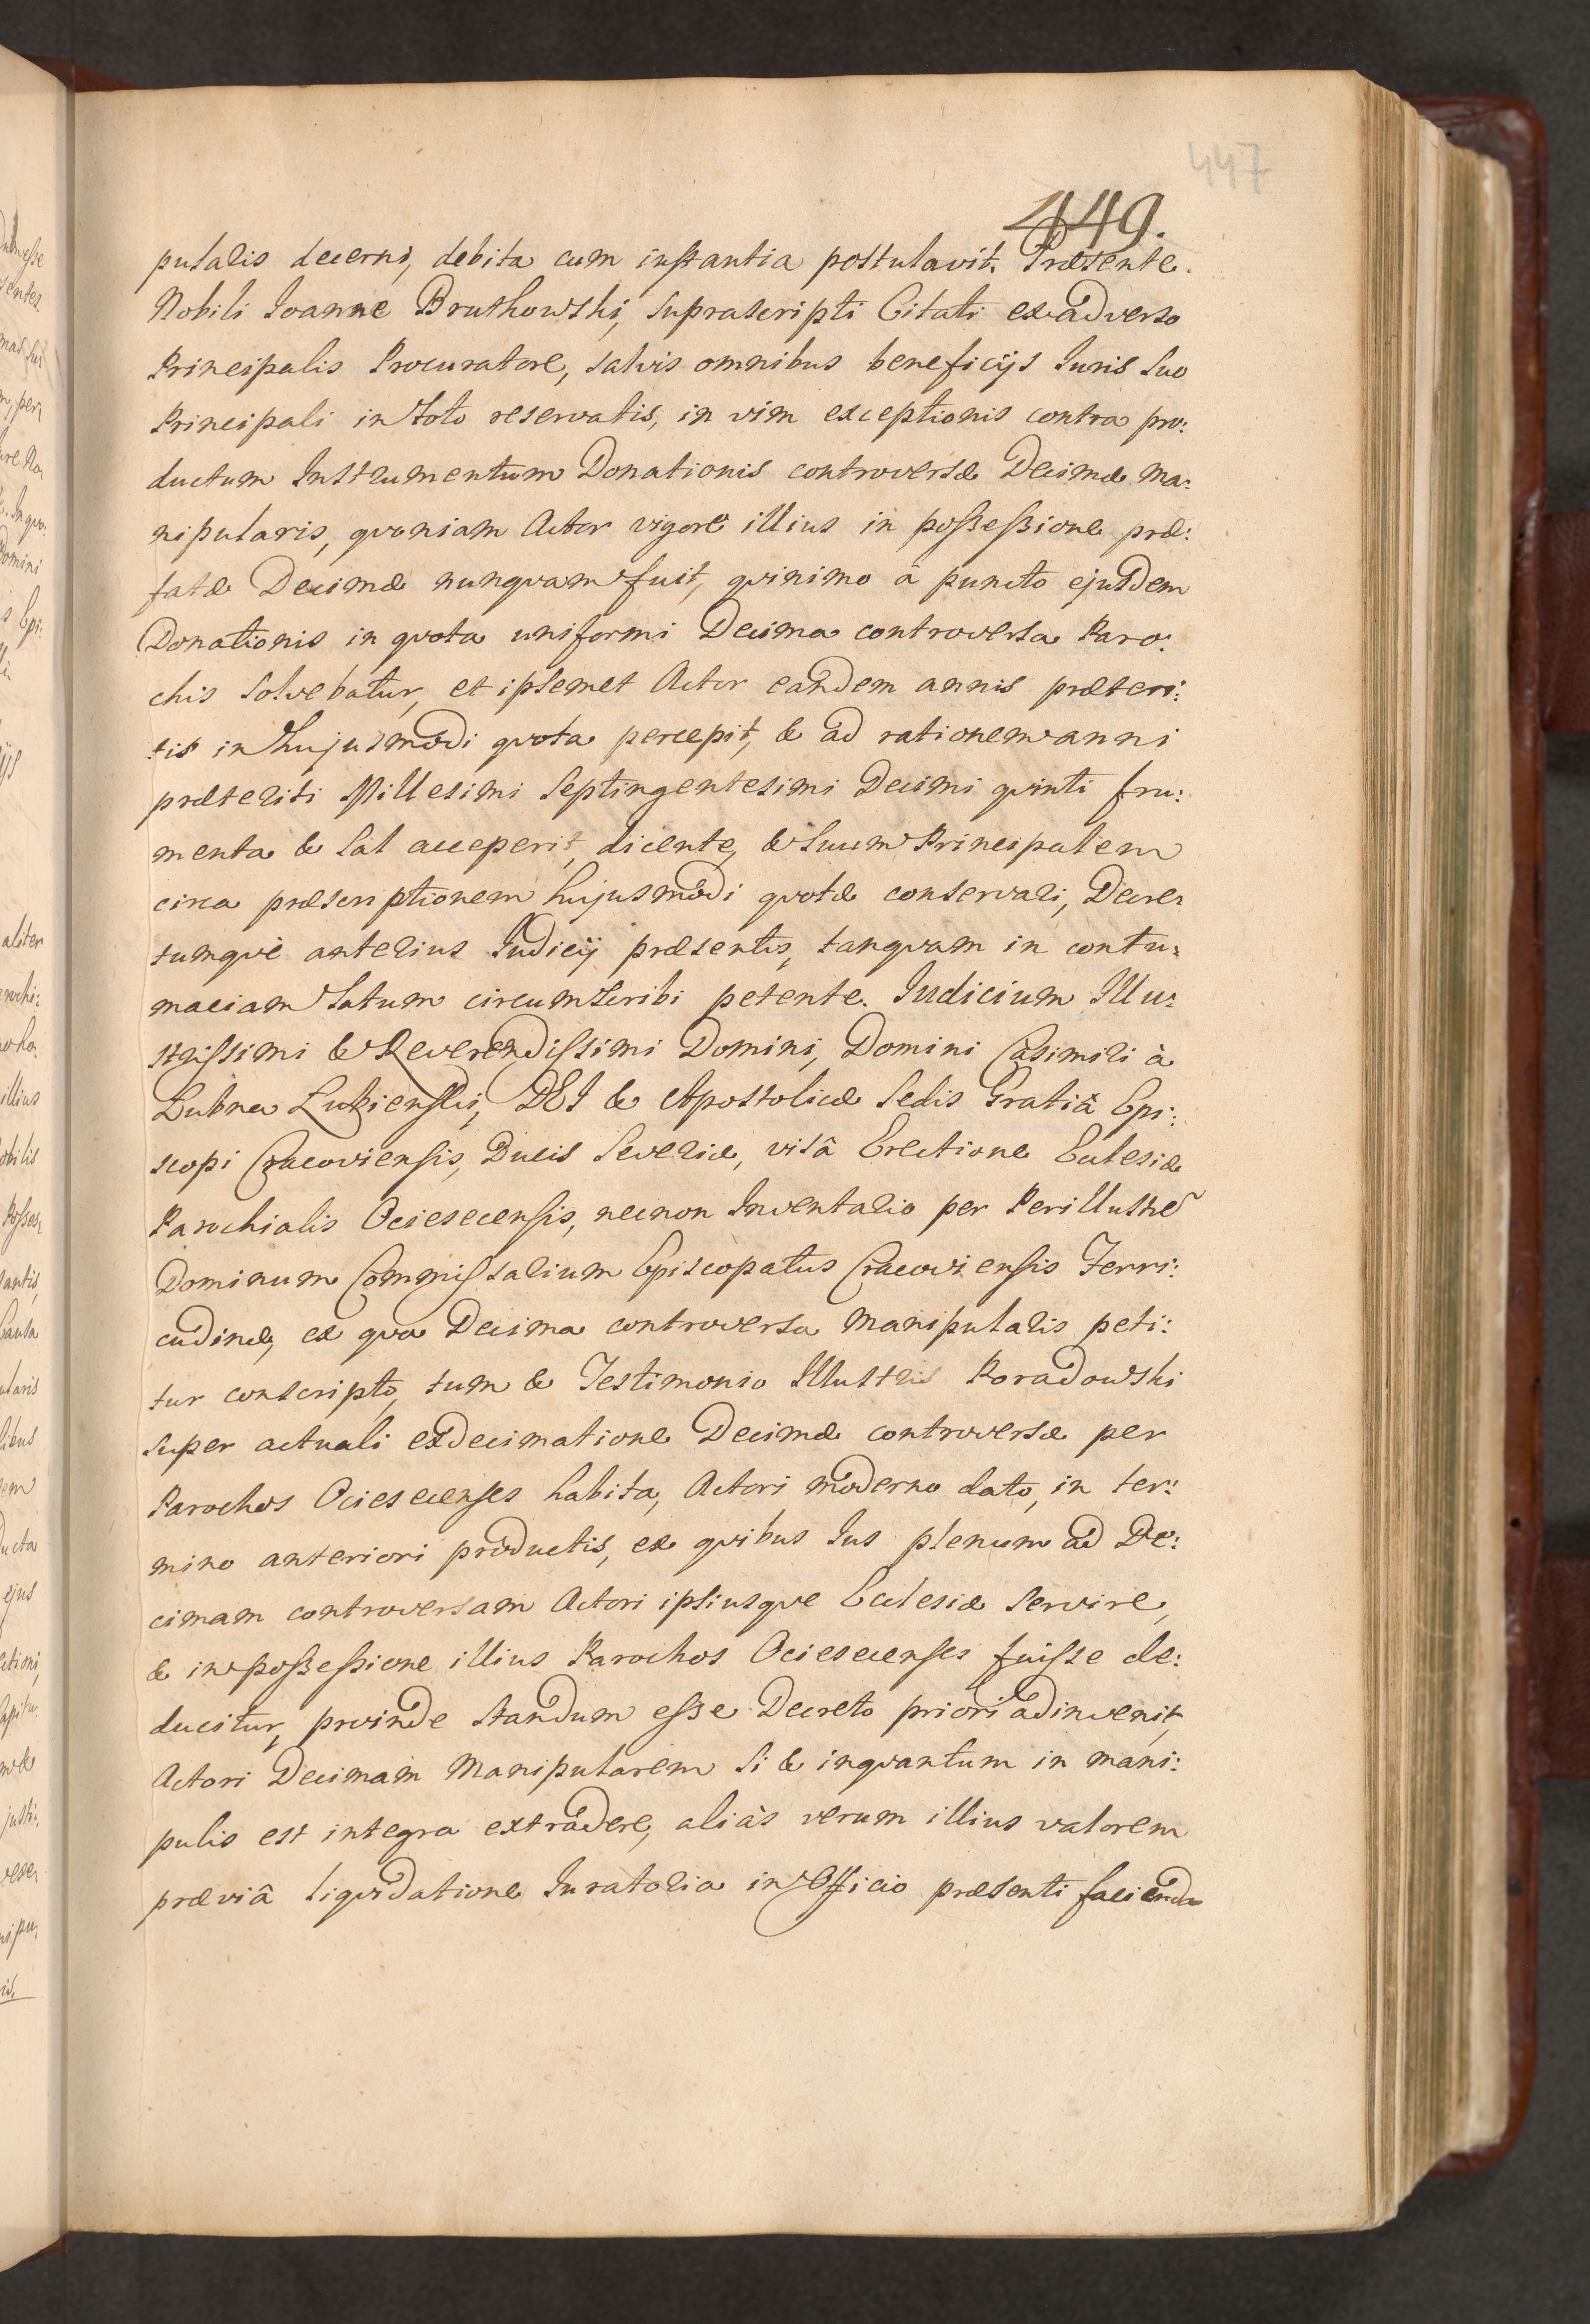 447
449.
putalis decerni, debita cum instantia postulavit. Præsente
Nobili Ioanne Bruthowski, suprascripti Citati ex adverso
Principalis Procuratore, salvis omnibus beneficijs Iuris suo
Principali in toto reservatis, in vim exceptionis contra pro:
ductum Instrumentum Donationis controversæ Decimæ ma:
nipularis, qvoniam Actor vigore illius in possessione præ:
fatæ Decimæ nunqvam fuit, qvinimo â puncto ejusdem
Donationis in qvota uniformi Decima controversa Paro:
chis solvebatur, et ipsemet Actor eandem annis præteri:
tis in hujusmodi qvota percepit, & ad rationem anni
præteriti Millesimi Septingentesimi Decimi qvinti fru:
menta & sal acceperit, dicente, & suum Principalem
circa præscriptionem hujusmodi qvotæ conservari, Decre:
tumqvè anterius Iudicij præsentis, tanqvam in contu:
maciam latum circumscribi petente. Iudicium Illu:
strissimi & Reverendissimi Domini, Domini Casimiri à
Lubna Łubienski, DEI & Apostolicæ Sedis Gratiâ Epi:
scopi Cracoviensis, Ducis Severiæ, visâ Erectione Eclesiæ
Parochialis Ociesecensis, necnon Inventario per Perillustre
Dominum Commissarium Episcopatus Cracoviensis Terri:
cudinæ, ex qva Decima controversa Manipularis peti:
tur conscripto, tum & Testimonio Illustris Poradowski
super actuali exdecimatione Decimæ controversæ per
Parochos Ociesecenses habita, Actori moderno dato, in ter:
mino anteriori productis, ex qvibus Ius plenum ad De:
cimam controversam Actori ipsiusqve Ecclesiæ servire,
& in possessione illius Parochos Ociesecenses fuisse de:
ducitur, proinde standum esse Decreto priori adinvenit,
Actori Decimam Manipularem si & inqvantum in mani:
pulis est integra extradere, aliàs verum illius valorem
præviâ liqvidatione Iuratoria in Officio præsenti facienda